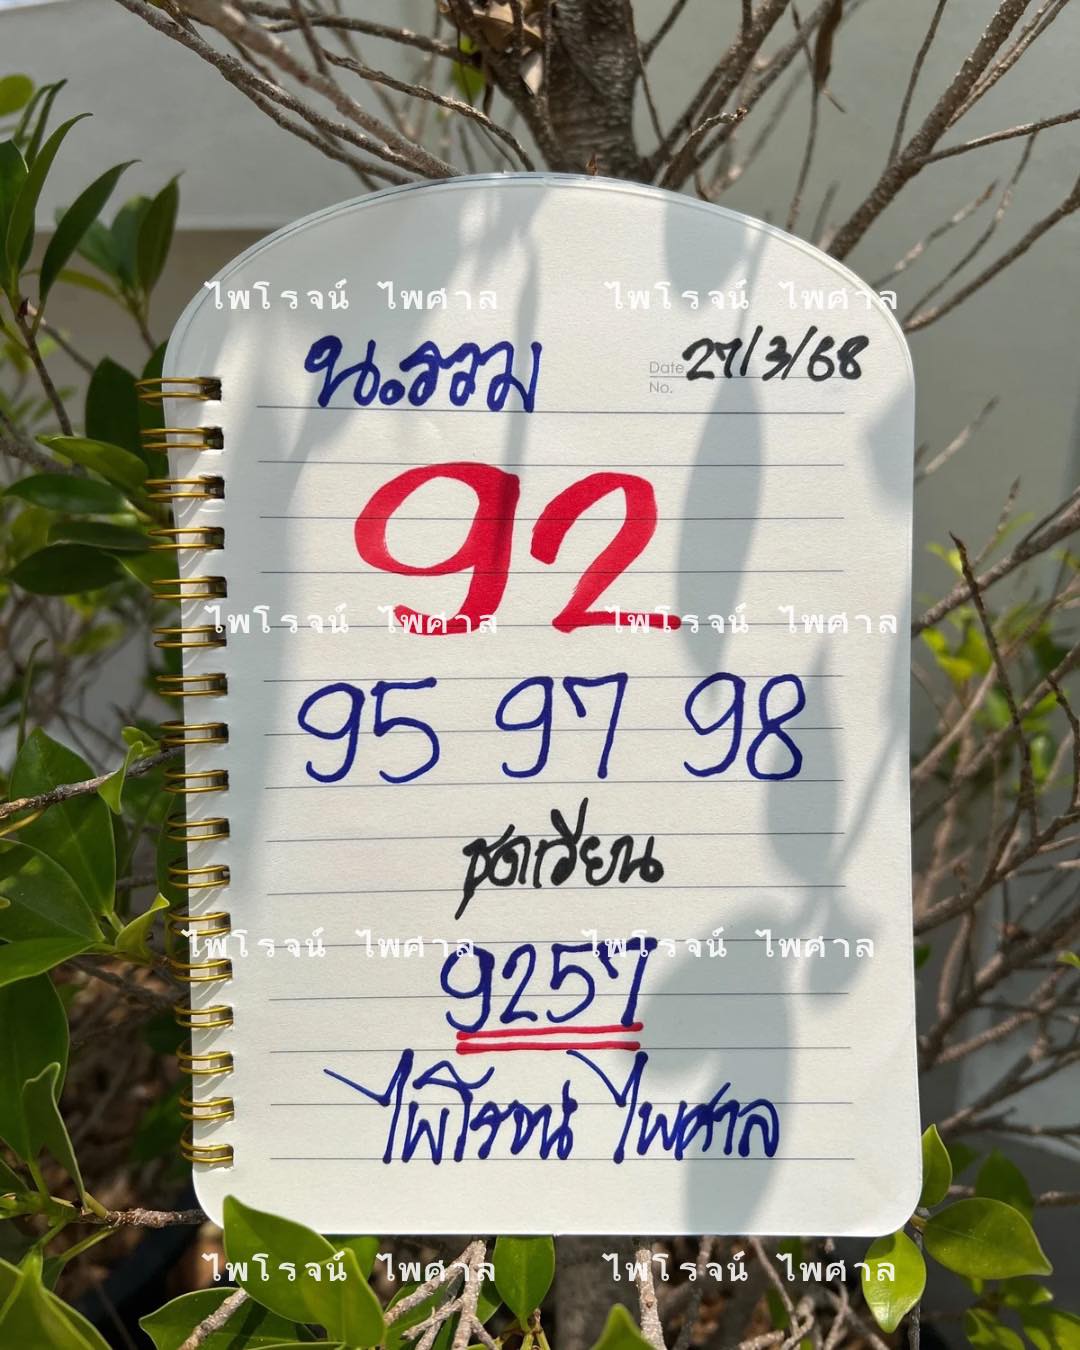 ไพโรจน์ ไพศาล ไพโรจน์ ไพศาล
น.รวม
Date 27/3/68
No.
92
ไพโรจน์ ไพศาล ไพโรจน์ ไพศาล
95 97 98
ชุดเวียน
ไพโรจน์ ไพศาล ไพโรจน์ ไพศาล
9257
ไพโรจน์ ไพศาล
ไพโรจน์ ไพศาล ไพโรจน์ ไพศาล